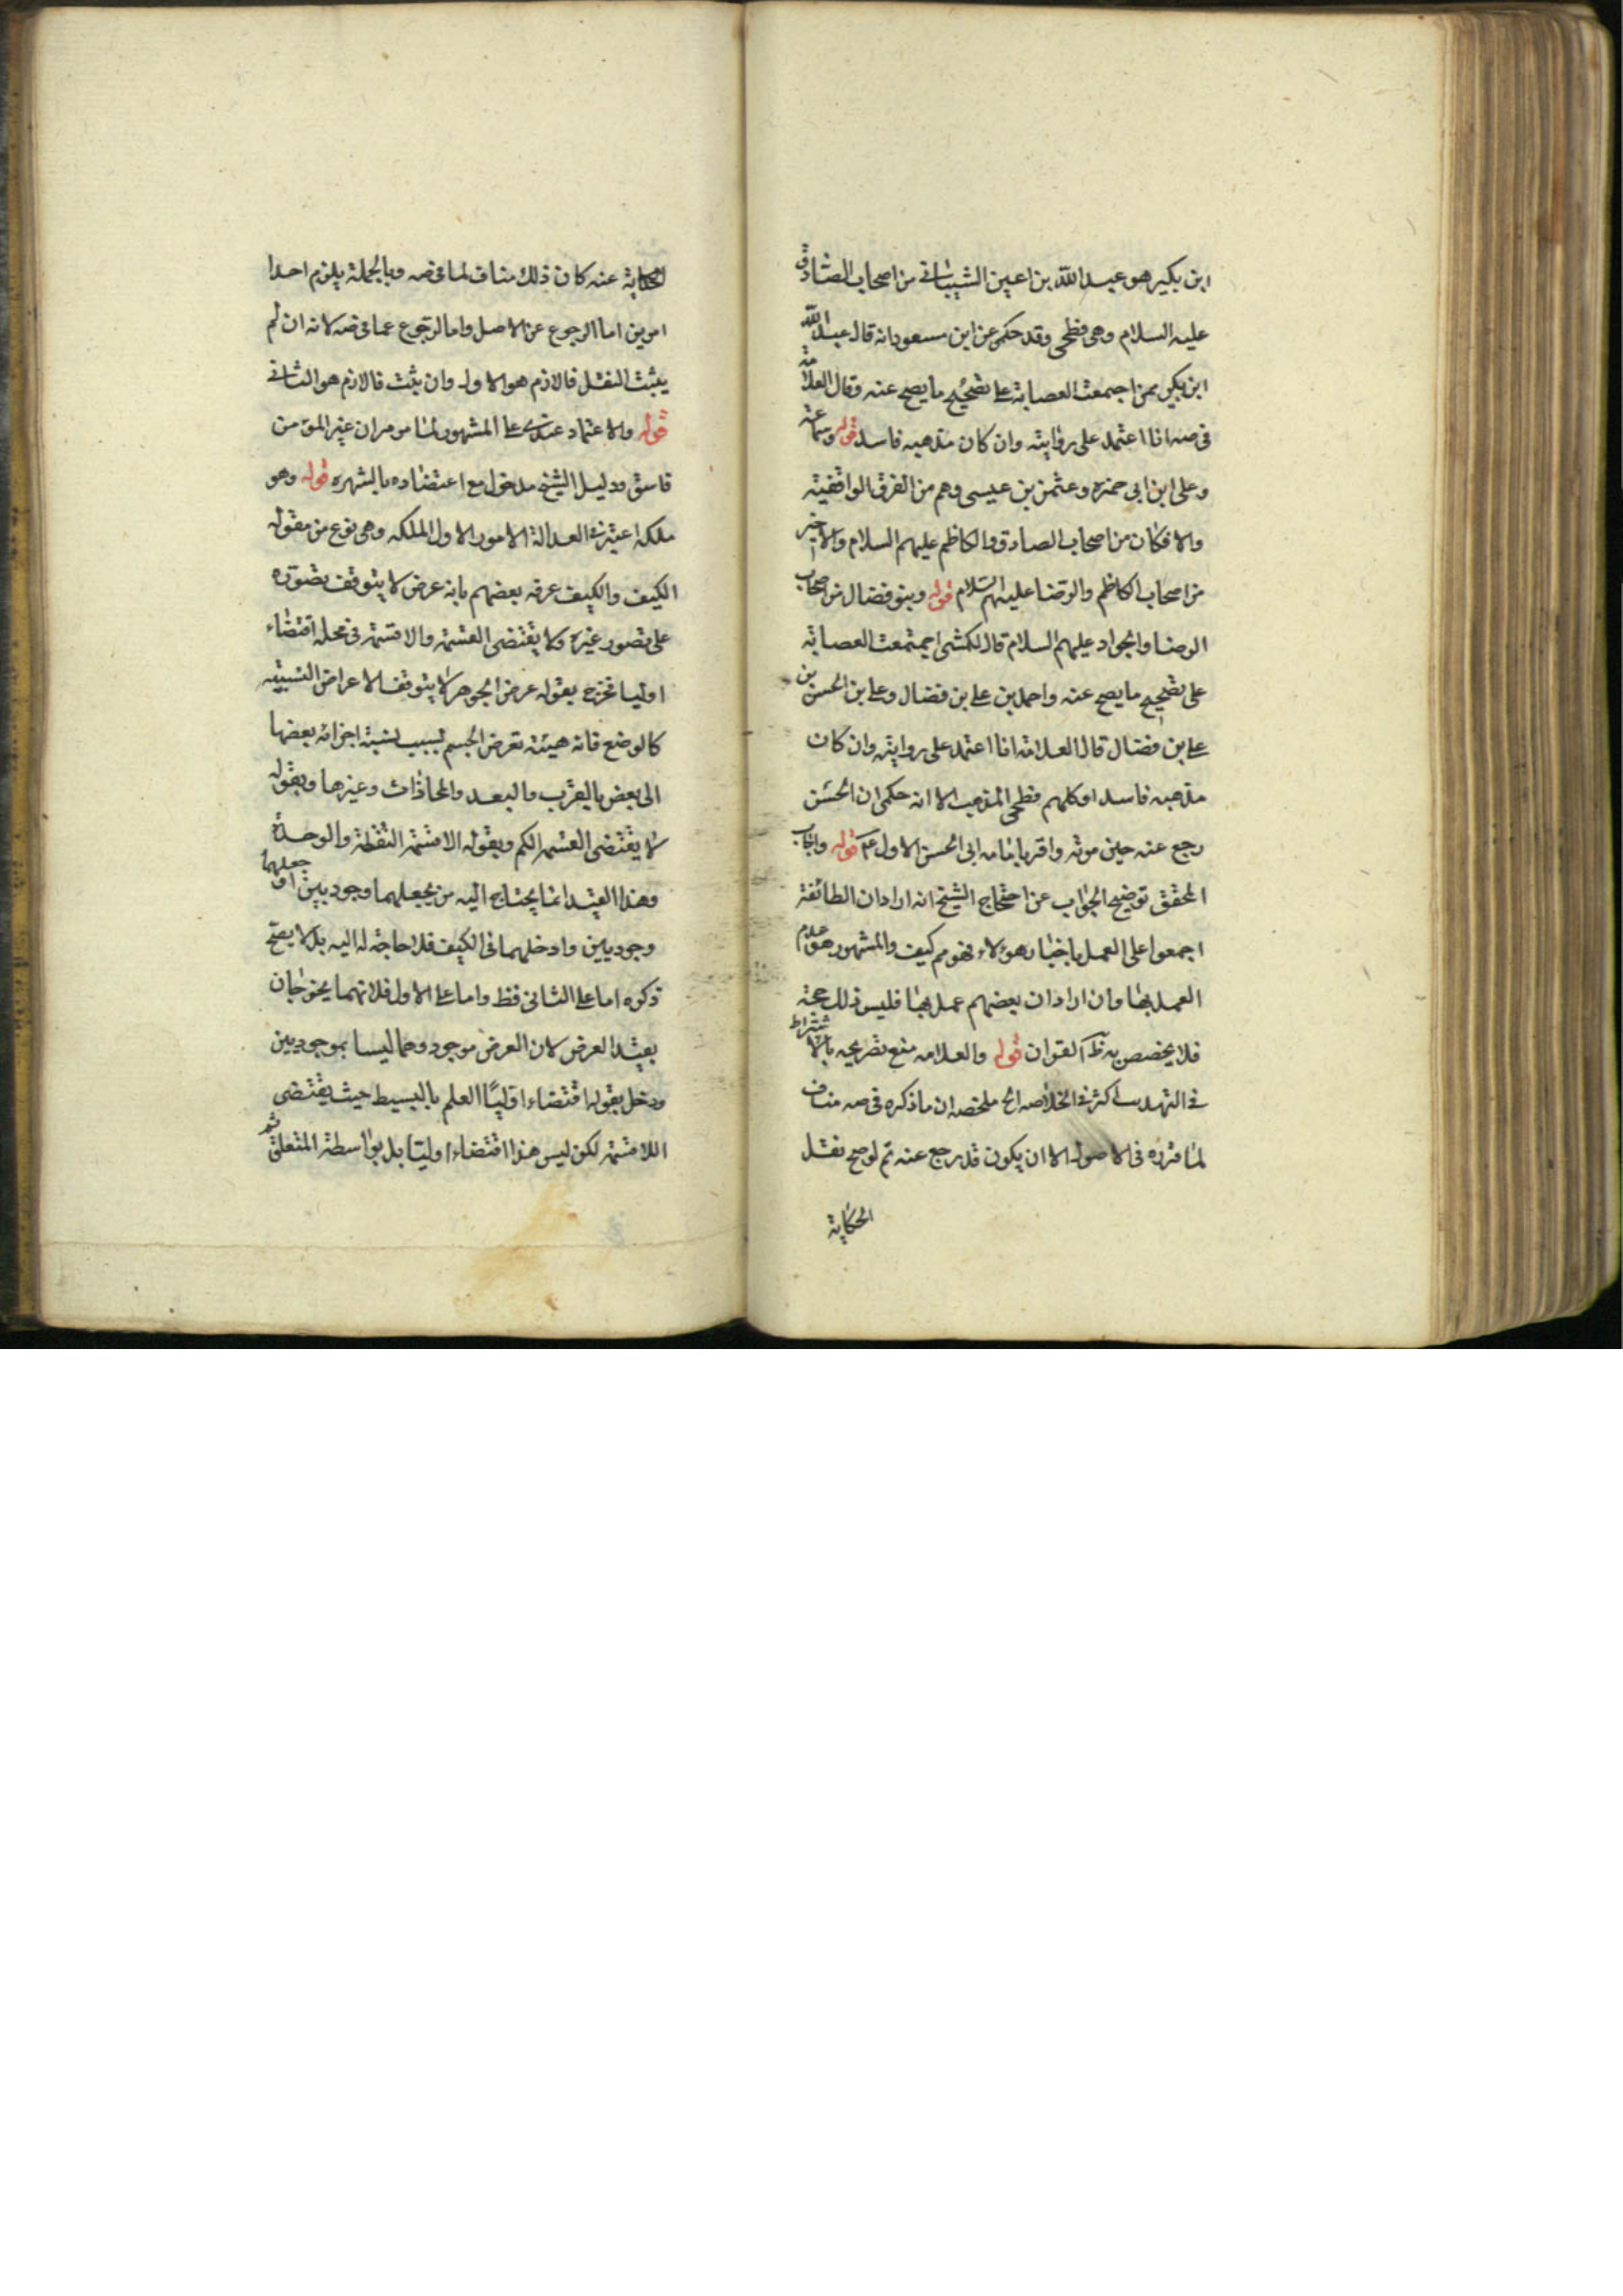 ابن بكير هو عبد الله بن اعين الشيباني من اصحاب الصادق
عليه السلام وهى فطحى وقد حكى عن ابن مسعود انه قال عبد الله
ابن بكير ممن اجتمعت العصابة على تصحيح ما يصح عنه وقال العلامة
فى صه انا اعتمد على روايته وان كان مذهبه فاسد قوله وسماعة
وعلى ابن ابى حمزه وعثمن بن عيسى وهم من الفرق الواقفية
والا فكان من اصحاب الصادق والكاظم عليهم السلام والاخير
من اصحاب الكاظم والرضا عليهم السلام قوله وبنو فضال من اصحاب
الرضا والجواد عليهم السلام قال الكشى اجتمعت العصابة
على تصحيح ما يصح عنه واحمد بن على بن فضال وعلى بن الحسن بن
على بن فضال قال العلامة انا اعتمد على روايته وان كان
مذهبه فاسد او كلهم فطحى المذهب الا انه حكى ان الحسن
رجع عنه حين موته واقر بامامه ابى الحسن الاول ع قوله واجاب
المحقق توضيح الجواب عن احتجاج الشيخ انه اراد ان الطائفة
اجمعوا على العمل باخبار هؤلاء فهو مم كيف والمشهور هو عدم
العمل بها وان اراد ان بعضهم عمل بها فليس ذلك حجة
فلا يخصص به ظ القران قوله والعلامه منع تصريحه بالاشتراط
فى التهذيب اكثر فى الخلاصه الح ملخصه ان ما ذكره فى صه مناف
لما قرره فى الاصول الا ان يكون قد رجع عنه ثم لو صح نقل
الحكاية
الحكاية عنه كان ذلك مناف لما فى صه وبالجملة يلزم احد ا
امرين اما الرجوع عن الاصل واما الرجوع عما فى صه لانه ان لم
يثبت النقل فالازم هو الاول وان يثبت فالازم هو الثانى
قوله والاعتماد عندى على المشهور لما مر من ان غير المؤمن
فاسق ودليل الشيخ مدخول مع اعتضاده بالشهره قوله وهو
ملكه اعتبر فى العدالة الامور الاول الملكه وهى نوع من مقوله
الكيف والكيف عرفه بعضهم بانه عرض لا يتوقف تصوره
على تصور غيره ولا يقتضى القسمة والاقسمة فى محله اقتضاء
اوليا فخرج بقوله عرض الجوهر لا يتوقف الاعراض النسبيه
كالوضع فانه هيئة تعرض الجسم بسبب نسبة اجزائه بعضها
الى بعض بالقرب والبعد والمحاذات وغيرها وبقوله
لا يقتضى القسمه الكم وبقوله الاقسمة النقطة والوحدة
وهذا القيد انما يحتاج اليه من يجعلهما وجوديين او جعلهما
وجوديين وادخلهما فى الكيف فلا حاجة له اليه بل لا يصح
ذكره اما على الثانى فظ واما على الاول فلانهما يخرجان
بقيد العرض لان العرض موجود وهما ليسا بموجوديين
ودخل بقوله اقتضاء اوليًا العلم بالبسيط حيث يقتضى
اللاقسمة لكن ليس هذا اقتضاء اوليا بل بواسطة المتعلق